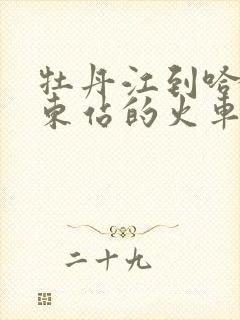 牡丹江到哈
东佔的火車
二十九